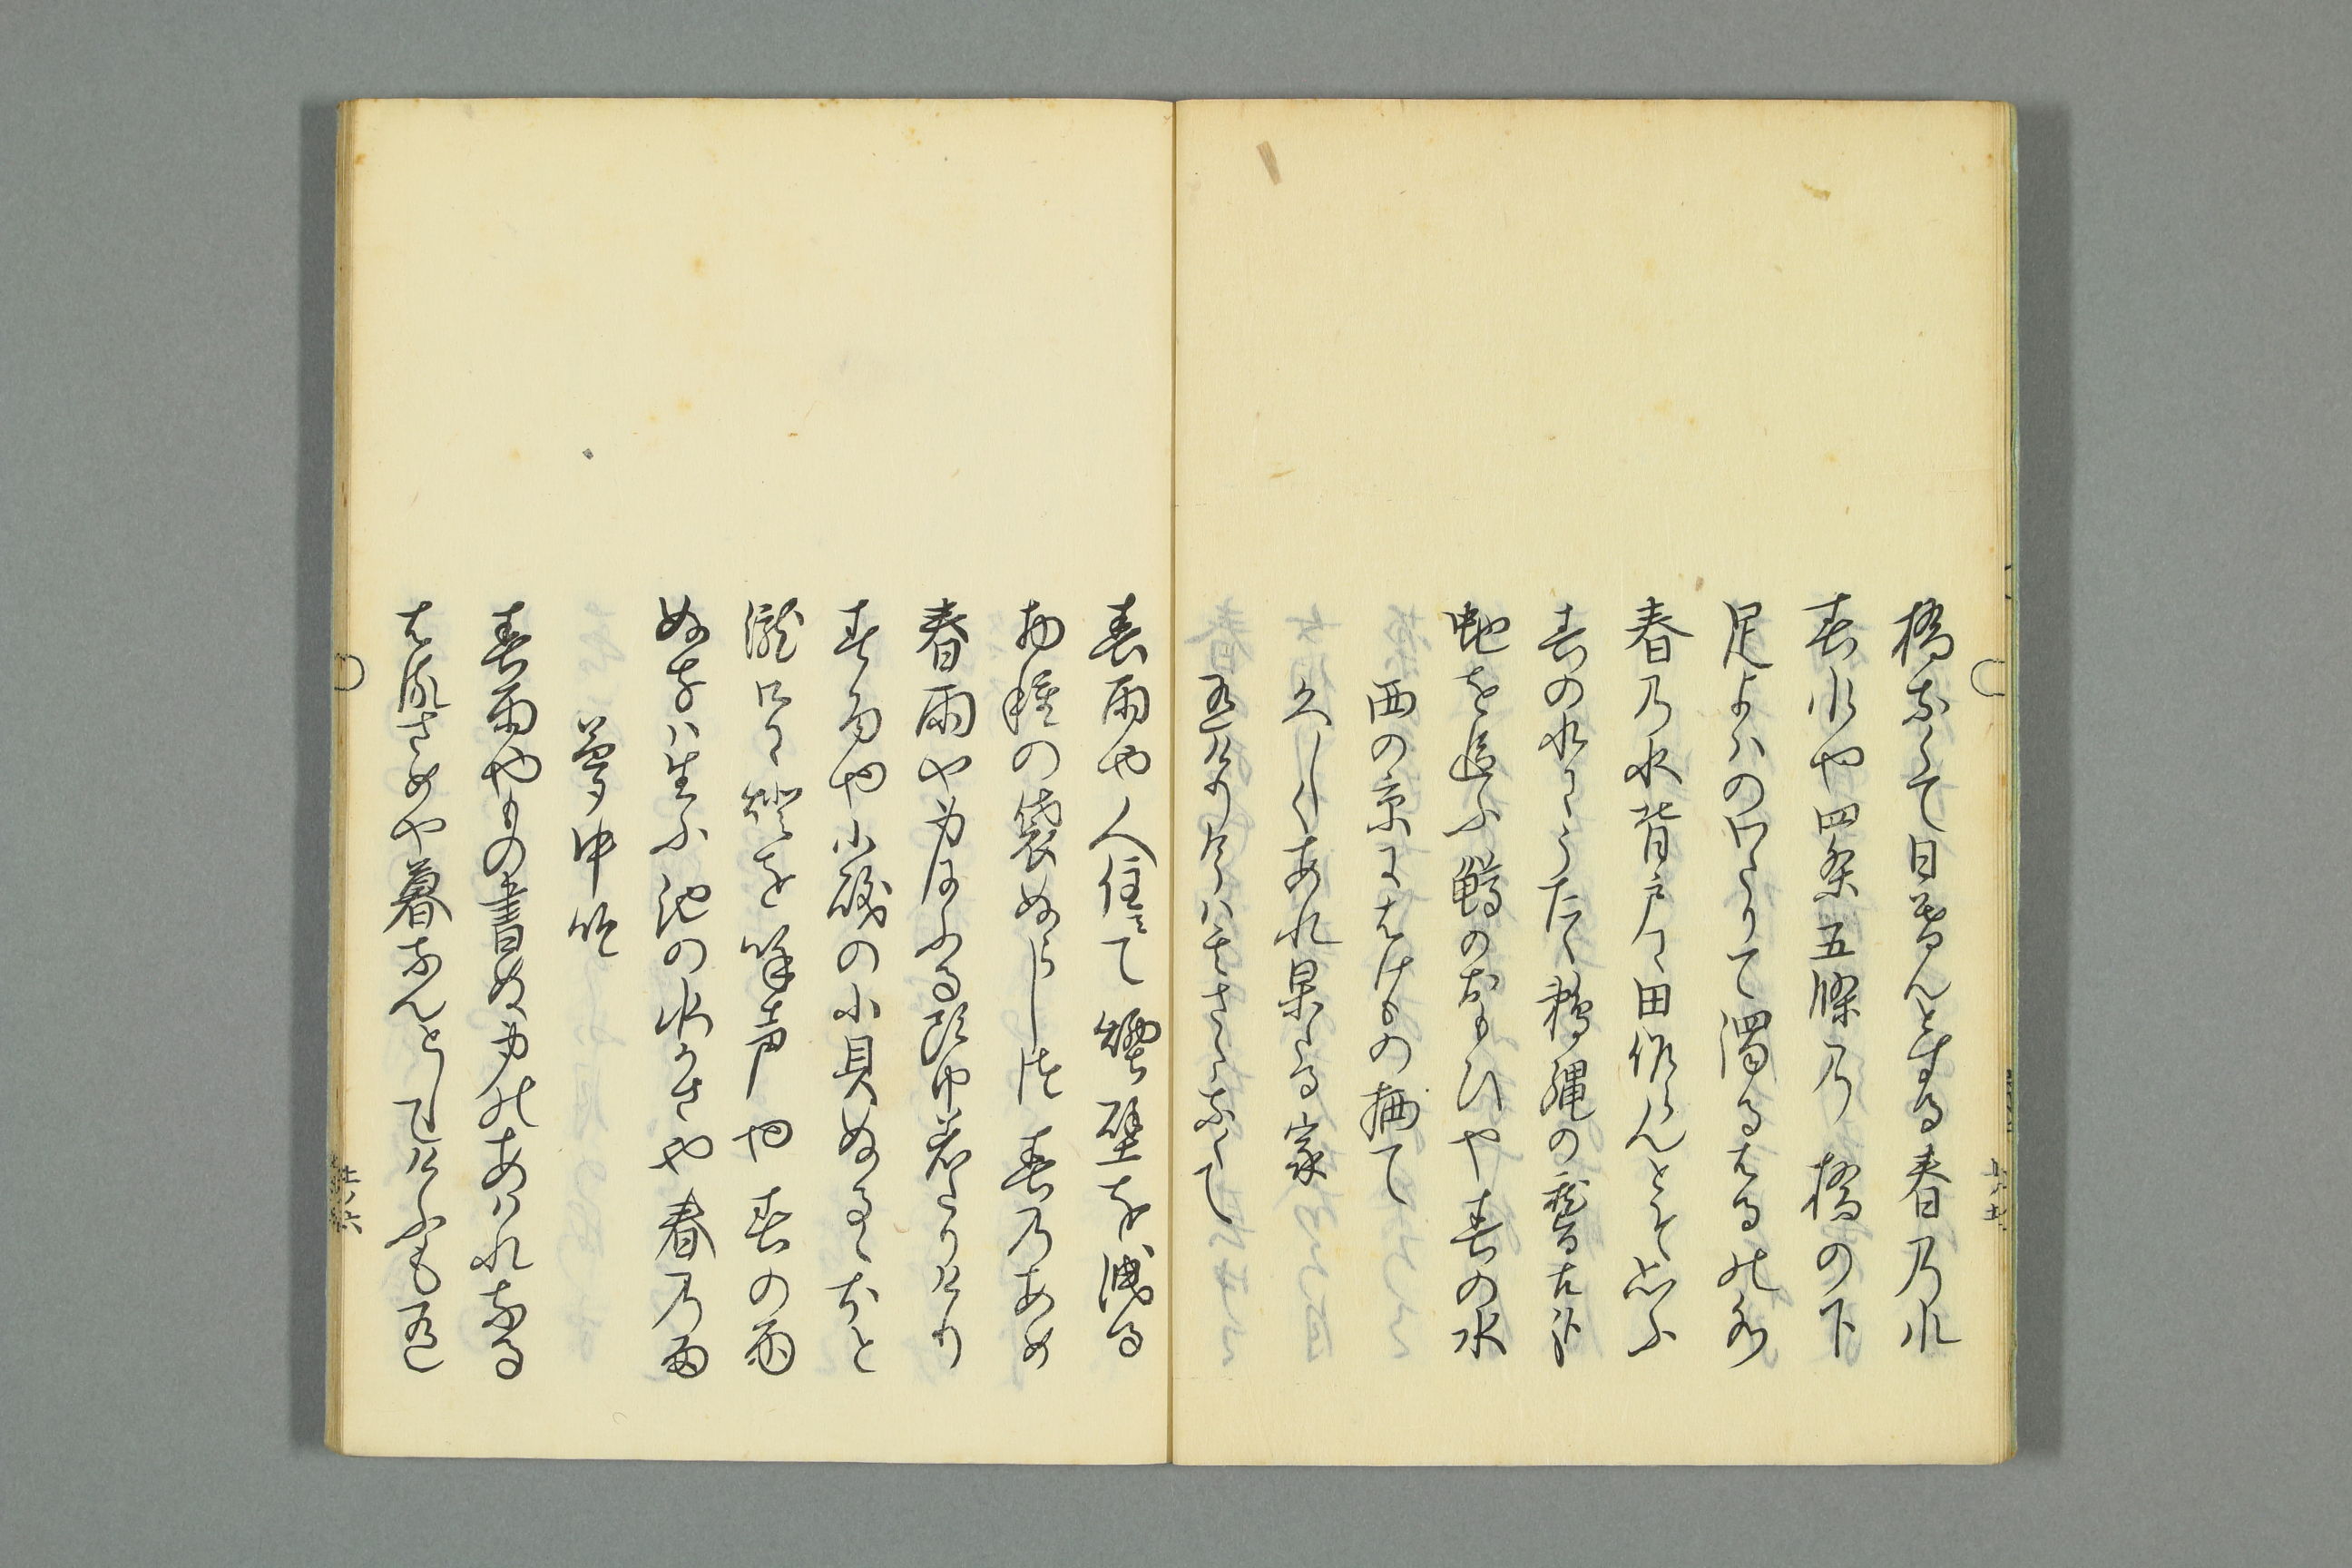 橋なくて日暮んとする春の水
春水や四条五條の橋の下
足よはのわたりて濁るはるの水
春の水背戸に田作らんとぞ思ふ
春の水にうたゝ鵜縄の稽古哉
蛇を追ふ鱒のおもひや春の水
西の京にはけもの栖て
久しくあれ果たる家
有けり今は其さたなくて
春雨や人住ミて煙壁を洩る
物種の袋ぬらしつ春のあめ
春雨や身にふる頭巾着たりけり
春雨や小磯の小貝ぬるゝほと
瀧口に燈を呼声や春の雨
ぬなは生ふ池の水かさや春の雨
夢中吟
春雨やもの書ぬ身のあはれなる
はるさめや暮なんとしてけふも有
上ノ五
上ノ六